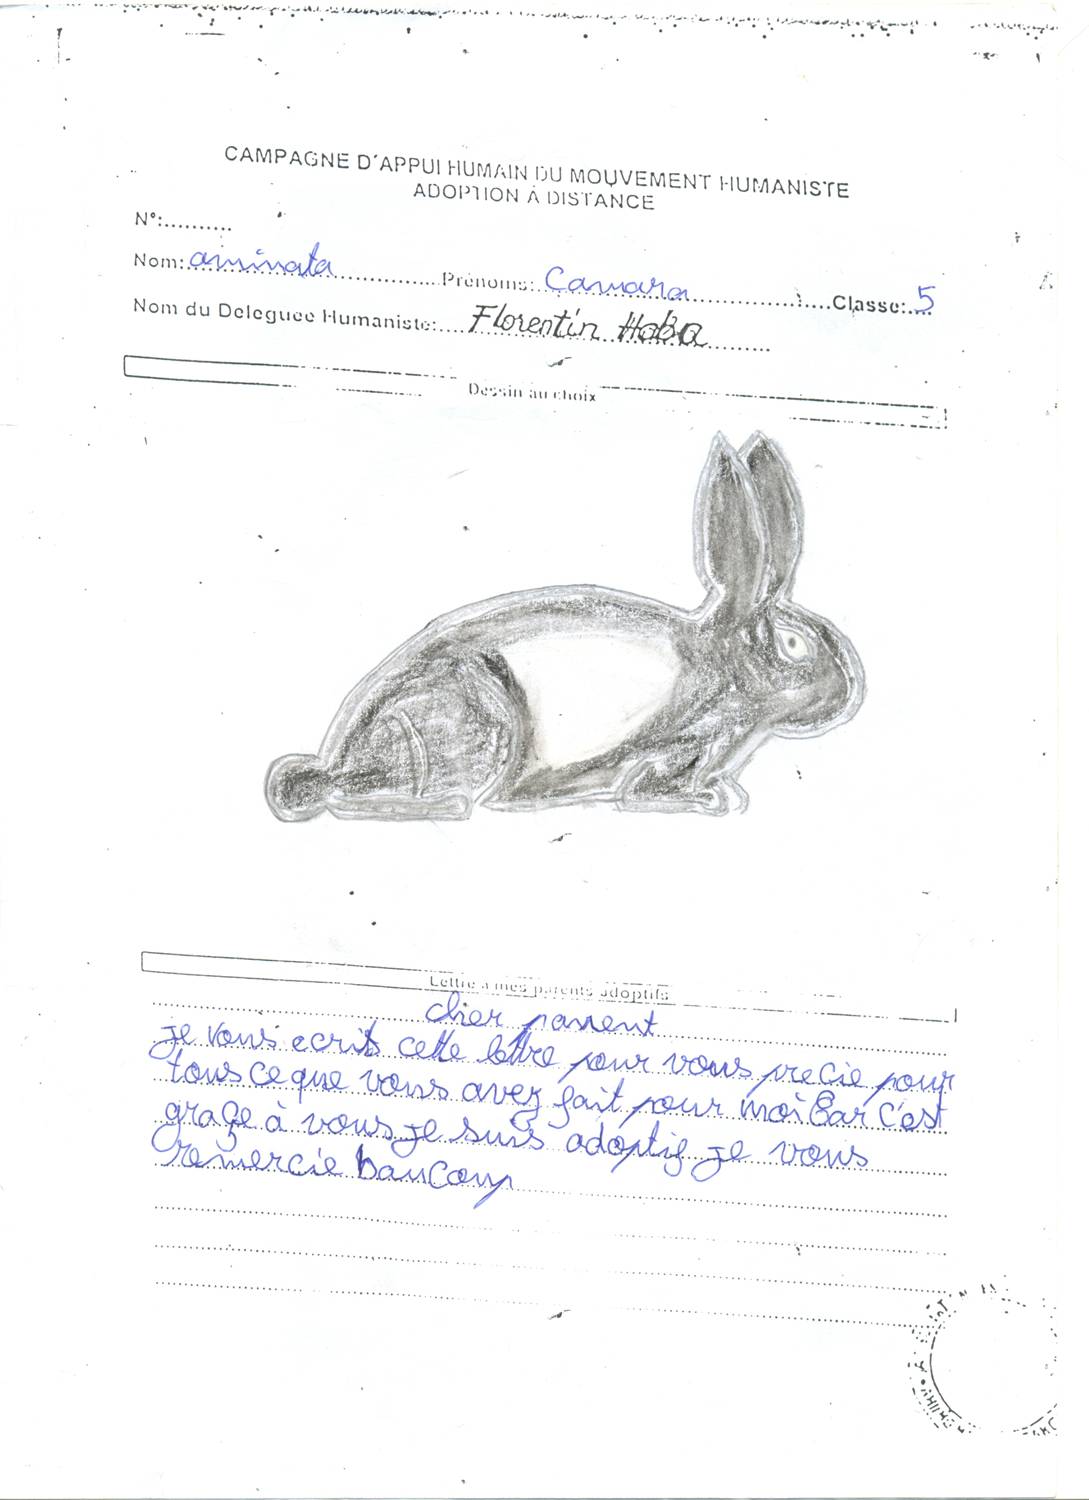 CAMPAGNE D'APPUI HUMAIN DU MOUVEMENT HUMANISTE
ADOPTION À DISTANCE
N°:..........
Nom: aminata Prénoms: Camara Classe: 5
Nom du Deleguee Humaniste: Florentin Haba
Dessin au choix
Lettre a mes parents adoptifs
cher parrent
je vous ecrits cette lettre pour vous precie pour
tous ce que vous avez fait pour moi Car C'est
graçe à vous je suis adoptif je vous
remercie baucoup